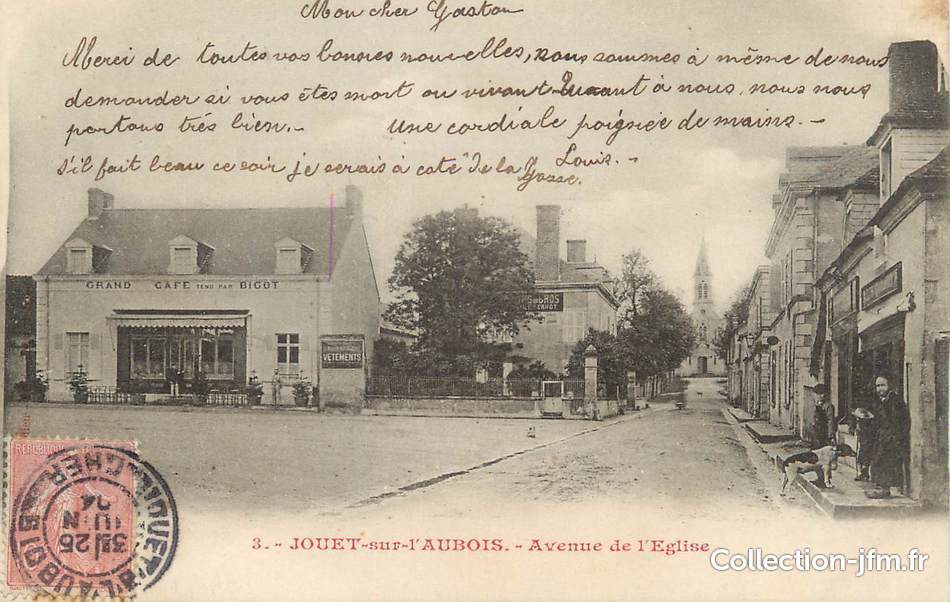 Mon cher Gaston
Merci de toutes vos bonnes nouvelles, nous sommes à même de nous
demander si vous êtes mort ou vivant Quant à nous, nous nous
portons très bien. - Une cordiale poignée de mains. -
Louis. -
s'il fait beau ce soir je serais à coté de la
GRAND CAFÉ TENU PAR BIGOT
VÊTEMENTS
GROS
RÉPUBLIQUE
JOUET-S-L'AUBOIS
CHER
25
JUIN
04
3. - JOUET-sur-l'AUBOIS. - Avenue de l'Eglise
Collection-jfm.fr